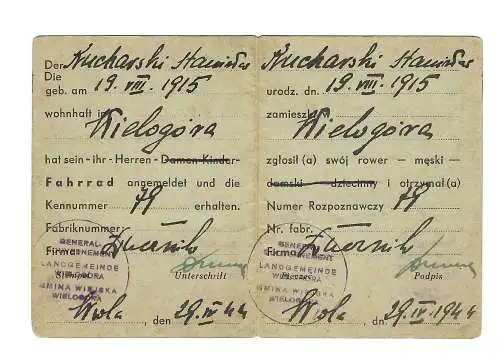 Der Kucharski Stanisław
Die
geb. am 19. VIII. 1915
wohnhaft in
Wielogóra
hat sein - ihr - Herren - Damen Kinder-
Fahrrad angemeldet und die
Kennummer 79 erhalten.
Fabriknummer:
Firma
GENERAL
GOUVERNEMENT
LANDGEMEINDE
WIELOGÓRA
GMINA WIEJSKA
WIELOGÓRA
Unterschrift
Wola, den 29. IV 44
Kucharski Stanisław
urodz. dn. 19. VIII. 1915
zamieszk
Wielogóra
zgłosił (a) swój rower — męski —
damski — dziecinny — i otrzymał (a)
Numer Rozpoznawczy 79
Nr. fabr.
Firma
GENERAL
GOUVERNEMENT
LANDGEMEINDE
WIELOGÓRA
GMINA WIEJSKA
WIELOGÓRA
Podpis
Wola, dn. 29. IV. 1944